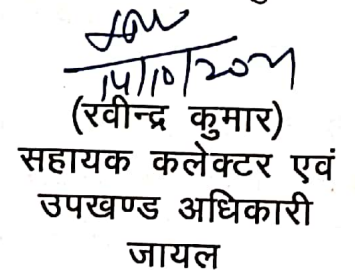 14/10/2021
(रवीन्द्र कुमार)
सहायक कलेक्टर एवं
उपखण्ड अधिकारी
जायल